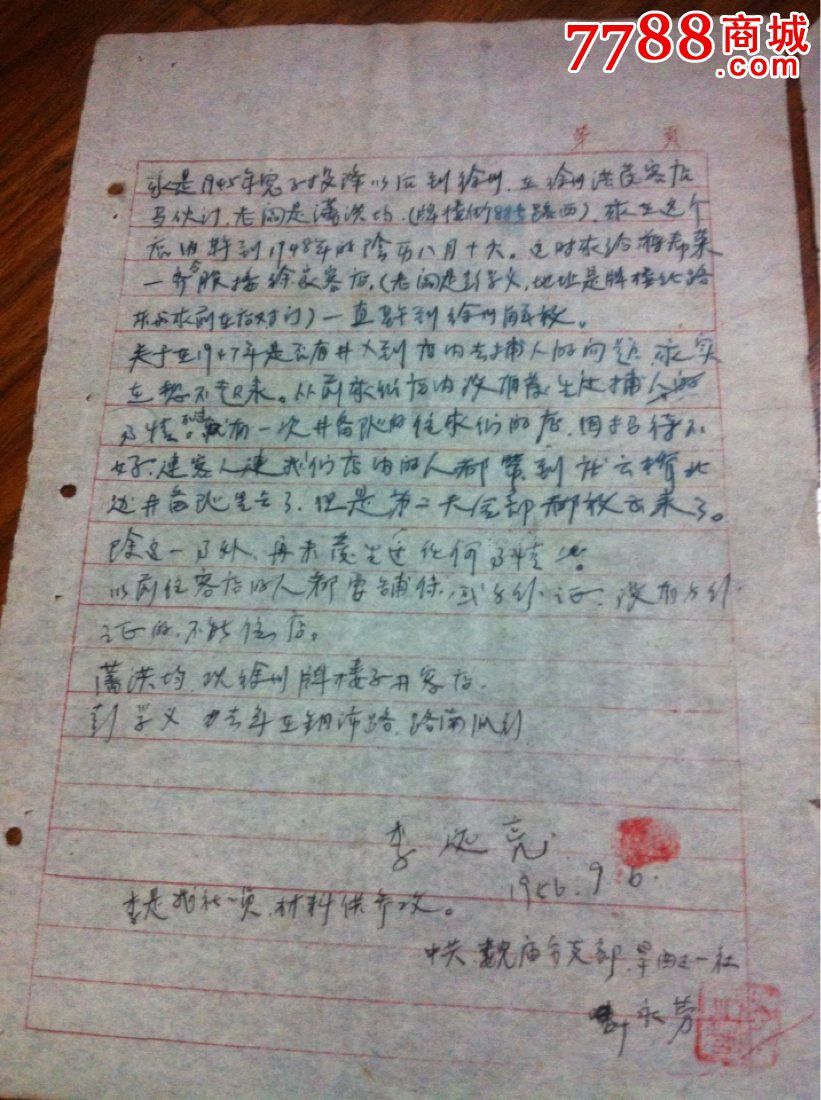 7788商城
.com
第 页
我是1945年鬼子投降以后到徐州,在徐州洪茂客店
当伙计,老闆是潘洪均,(牌楼街88号路西)我在这个
店内干到1948年的阴历八月十六。这时我给
一 股接徐家客店,(老闆是彭学义,地址是牌楼北路
东与我前在店对门)一直干到徐州解放。
关于在1947年是否有井人到店内去捕人的问题,我实
在想不起来。从前我们店内没有发生过捕人的
事情。就有一次井备队的住我们的店,因招待不
好,连客人连我们店内的人都带到 云桥北
边井备队里去了,但是第二天全部都放出来了。
除这一事外,再未发生过任何事情。
以前住客店的人都要铺保,或身份证,没有身份
证的,不能住店。
潘洪均 现徐州牌楼子开客店。
彭学义 去年在 路,路南
李 亮
1956.9.6.
李是我社一员,材料供参考。
中共魏庙乡支部,旱西一社
永芳